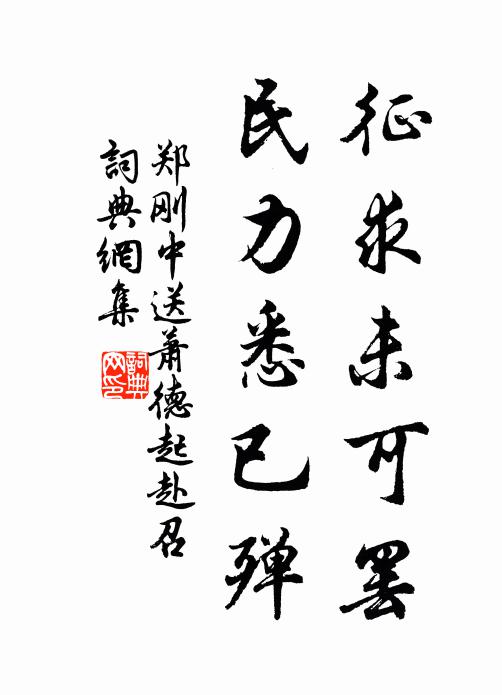 征求未可罢
民力悉已殫
郑刚中送蕭德起赴召
詞典網集
詞典网印